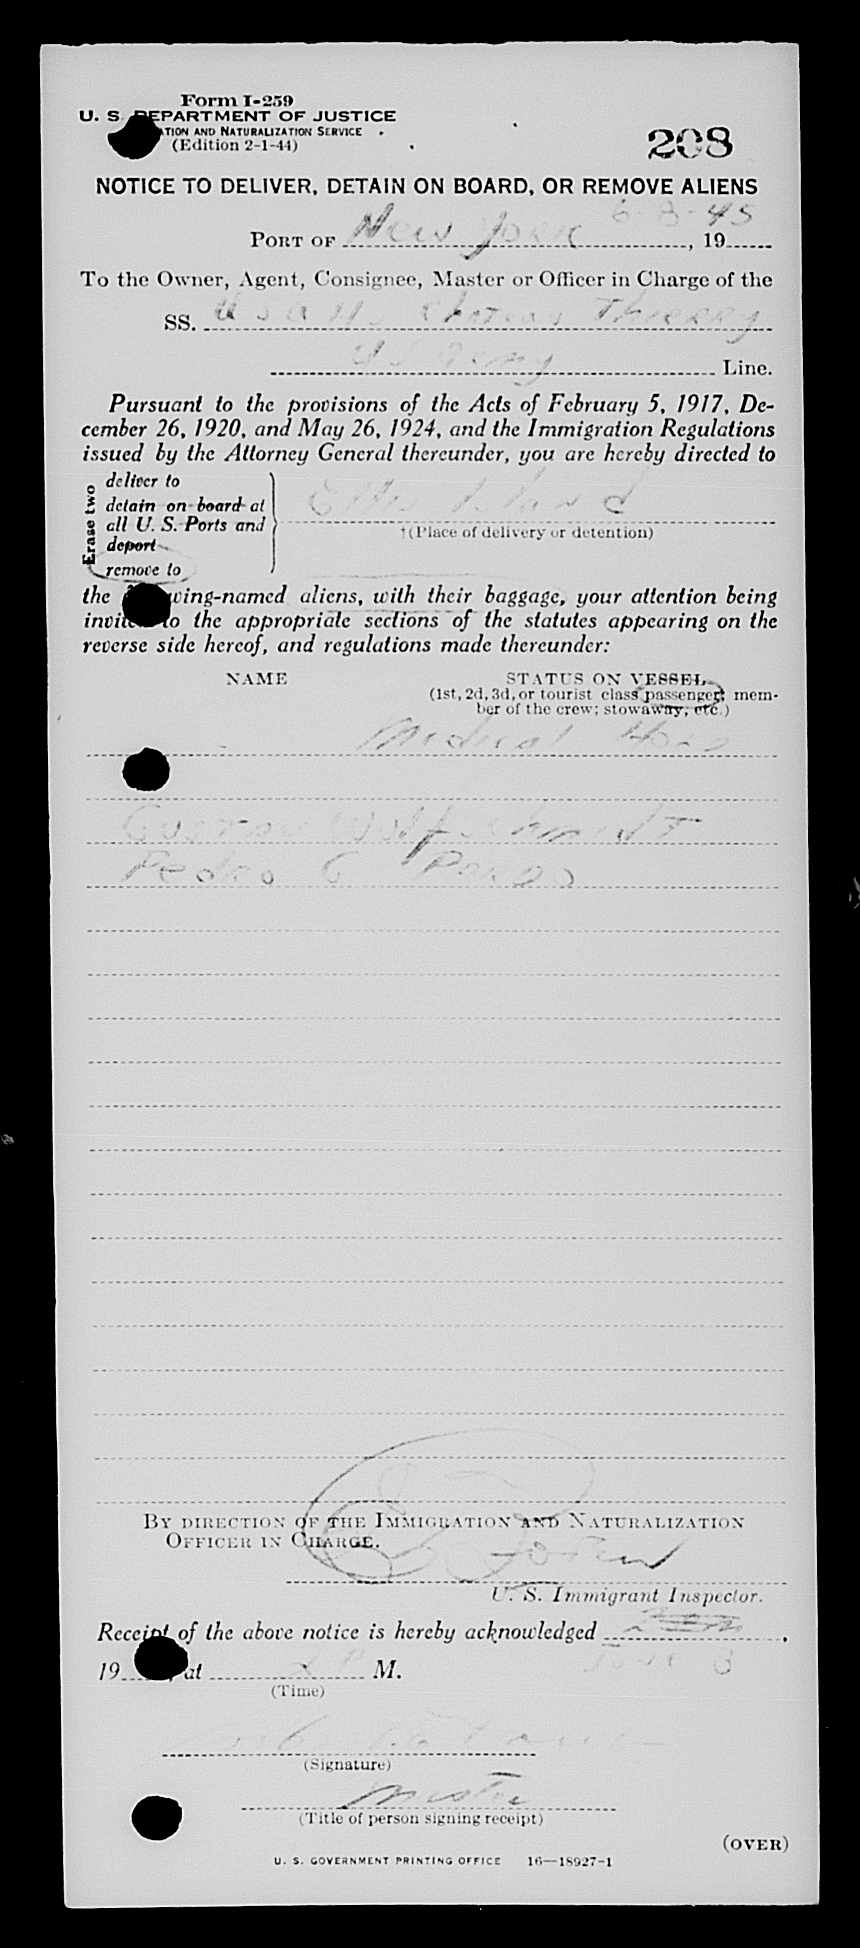 Form I-259
U. S. DEPARTMENT OF JUSTICE
AND NATURALIZATION SERVICE
(Edition 2-1-44)
208
NOTICE TO DELIVER, DETAIN ON BOARD, OR REMOVE ALIENS
6-3-45
PORT OF New York, 19
To the Owner, Agent, Consignee, Master or Officer in Charge of the
SS. USAHS Chateau Thierry
US Army Line.
Pursuant to the provisions of the Acts of February 5, 1917, De-
cember 26, 1920, and May 26, 1924, and the Immigration Regulations
issued by the Attorney General thereunder, you are hereby directed to
Erase two
deliver to
detain on board at
all U. S. Ports and
deport
remove to
Ellis Island
†(Place of delivery or detention)
the following-named aliens, with their baggage, your attention being
invited to the appropriate sections of the statutes appearing on the
reverse side hereof, and regulations made thereunder:
NAME
STATUS ON VESSEL
(1st, 2d, 3d, or tourist class passenger; mem-
ber of the crew; stowaway, etc.)
Medical Hold
Pedro
BY DIRECTION OF THE IMMIGRATION AND NATURALIZATION
OFFICER IN CHARGE.
U. S. Immigrant Inspector.
Receipt of the above notice is hereby acknowledged
June 3
19 , at 2 P M.
(Time)
(Signature)
(Title of person signing receipt)
(OVER)
U. S. GOVERNMENT PRINTING OFFICE 16—18927-1